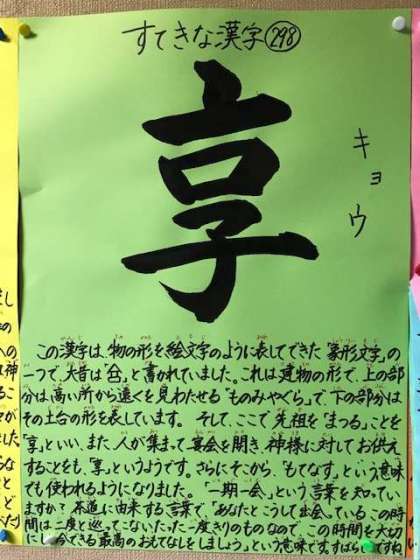 すてきな漢字298
享
キョウ
この漢字は、物の形を絵文字のように表してできた「象形文字」の
一つで、大昔は「㐭」と書かれていました。これは建物の形で、上の部
分は高い所から遠くを見わたせる「ものみやぐら」で、下の部分は
その土台の形を表しています。そして、ここで先祖を「まつる」ことを
「享」といい、また、人が集まって宴会を開き、神様に対してお供え
することをも、「享」というようです。さらにそこから、「もてなす」という意味
でも使われるようになりました。「一期一会」という言葉を知ってい
ますか？茶道に由来する言葉で、「あなたとこうして出会っているこの時
間は二度と巡ってこないたった一度きりのものなので、この時間を大切
にし今できる最高のおもてなしをしましょう」という意味です